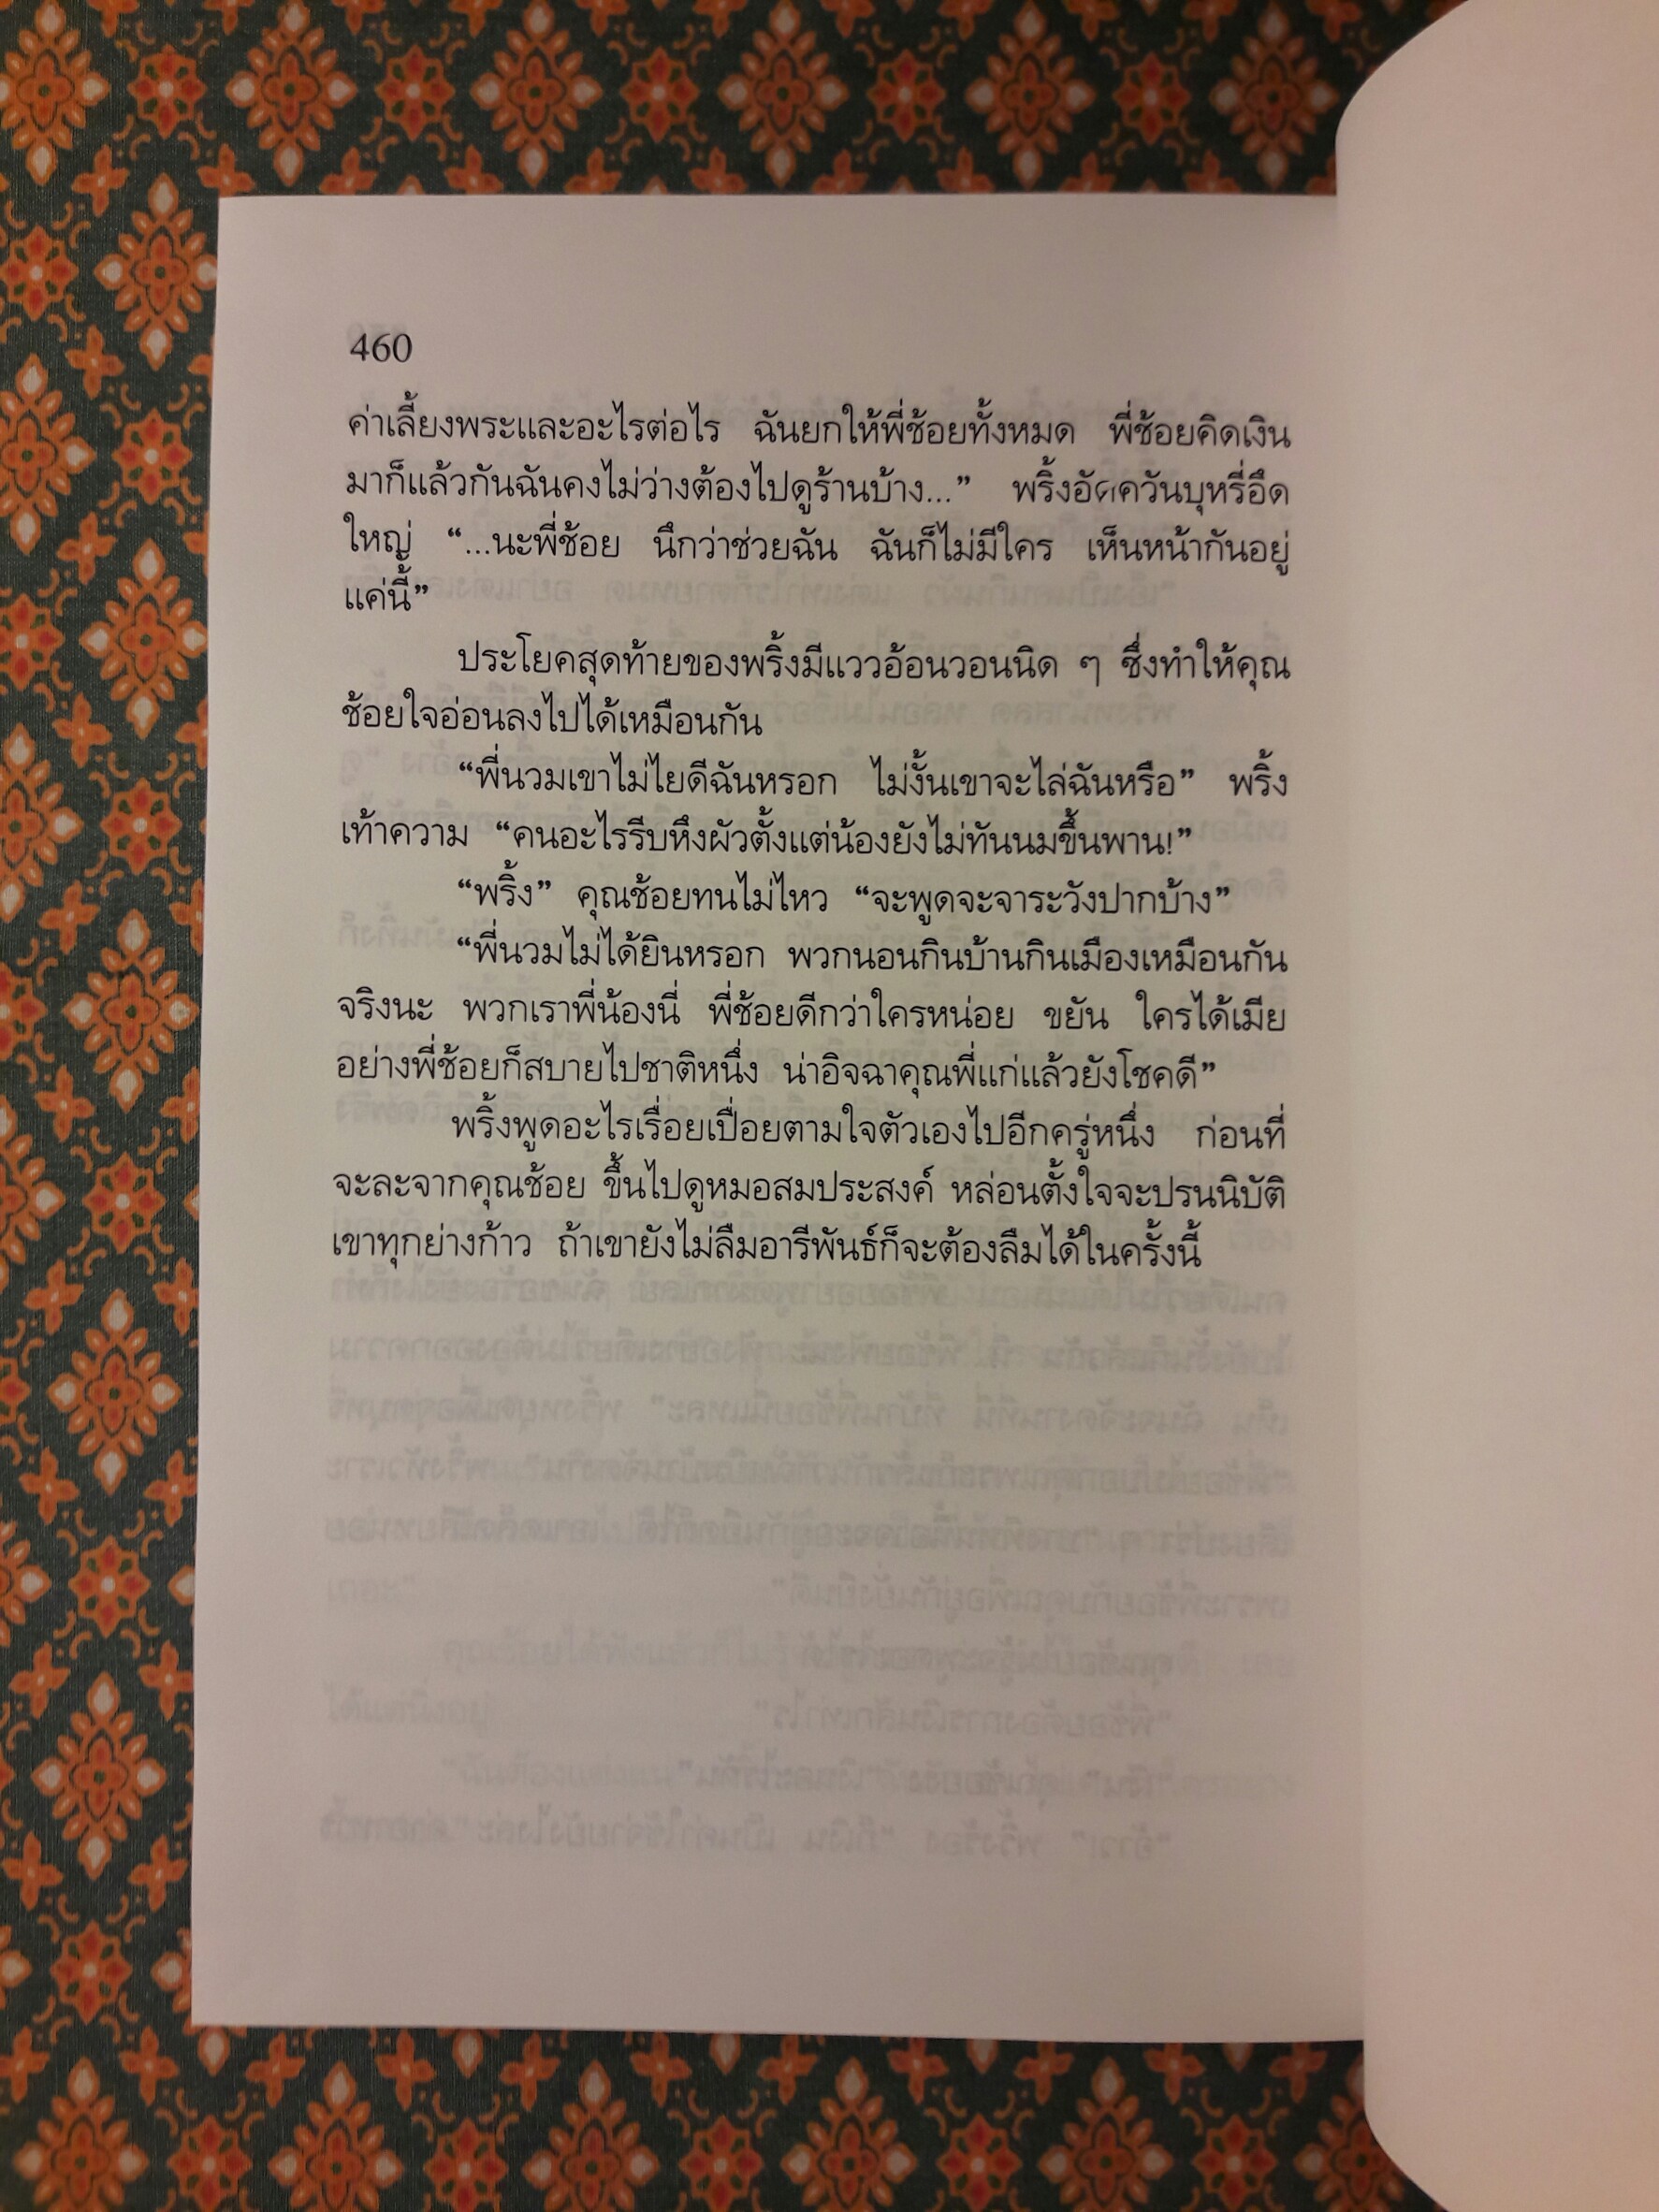 460
ค่าเลี้ยงพระและอะไรต่อไร ฉันยกให้พี่ช้อยทั้งหมด พี่ช้อยคิดเงิน
มาก็แล้วกันฉันคงไม่ว่างต้องไปดูร้านบ้าง...” พริ้งอัดควันบุหรี่อึด
ใหญ่ “...นะพี่ช้อย นึกว่าช่วยฉัน ฉันก็ไม่มีใคร เห็นหน้ากันอยู่
แค่นี้”
ประโยคสุดท้ายของพริ้งมีแววอ้อนวอนนิด ๆ ซึ่งทำให้คุณ
ช้อยใจอ่อนลงไปได้เหมือนกัน
“พี่นวมเขาไม่ไยดีฉันหรอก ไม่งั้นเขาจะไล่ฉันหรือ” พริ้ง
เท้าความ “คนอะไรรีบหึงผัวตั้งแต่น้องยังไม่ทันนมขึ้นพาน!”
“พริ้ง” คุณช้อยทนไม่ไหว “จะพูดจะจาระวังปากบ้าง”
“พี่นวมไม่ได้ยินหรอก พวกนอนกินบ้านกินเมืองเหมือนกัน
จริงนะ พวกเราพี่น้องนี่ พี่ช้อยดีกว่าใครหน่อย ขยัน ใครได้เมีย
อย่างพี่ช้อยก็สบายไปชาติหนึ่ง น่าอิจฉาคุณพี่แก่แล้วยังโชคดี”
พริ้งพูดอะไรเรื่อยเปื่อยตามใจตัวเองไปอีกครู่หนึ่ง ก่อนที่
จะละจากคุณช้อย ขึ้นไปดูหมอสมประสงค์ หล่อนตั้งใจจะปรนนิบัติ
เขาทุกย่างก้าว ถ้าเขายังไม่ลืมอารีพันธ์ก็จะต้องลืมได้ในครั้งนี้